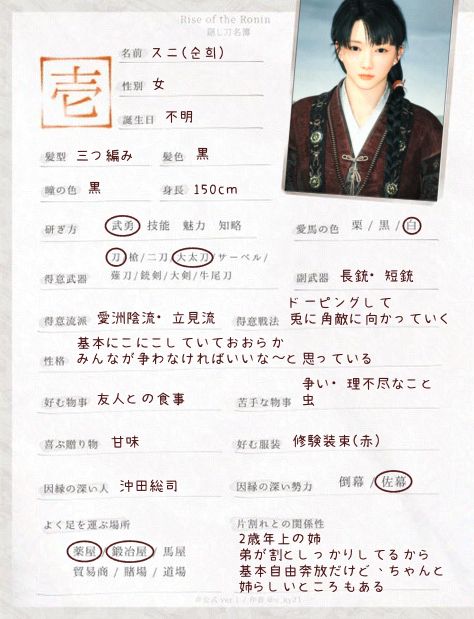 Rise of the Ronin
隠し刀名簿
壱
名前 スニ(순희)
性別 女
誕生日 不明
髪型 三つ編み 髪色 黒
瞳の色 黒 身長 150cm
研ぎ方 武勇 技能 魅力 知略
愛馬の色 栗 / 黒 / 白
得意武器 刀/槍/二刀/大太刀/サーベル/
薙刀/銃剣/大剣/牛尾刀
副武器 長銃・短銃
得意流派 愛洲陰流・立見流
得意戦法 ドーピングして
兎に角敵に向かっていく
性格 基本にこにこしていておおらか
みんなが争わなければいいな〜と思っている
好む物事 友人との食事
苦手な物事 争い・理不尽なこと
虫
喜ぶ贈り物 甘味 好む服装 修験装束(赤)
因縁の深い人 沖田総司 因縁の深い勢力 倒幕 / 佐幕
よく足を運ぶ場所
薬屋 / 鍛冶屋 / 馬屋
貿易商 / 賭場 / 道場
片割れとの関係性
2歳年上の姉
弟が割としっかりしてるから
基本自由奔放だけど、ちゃんと
姉らしいところもある